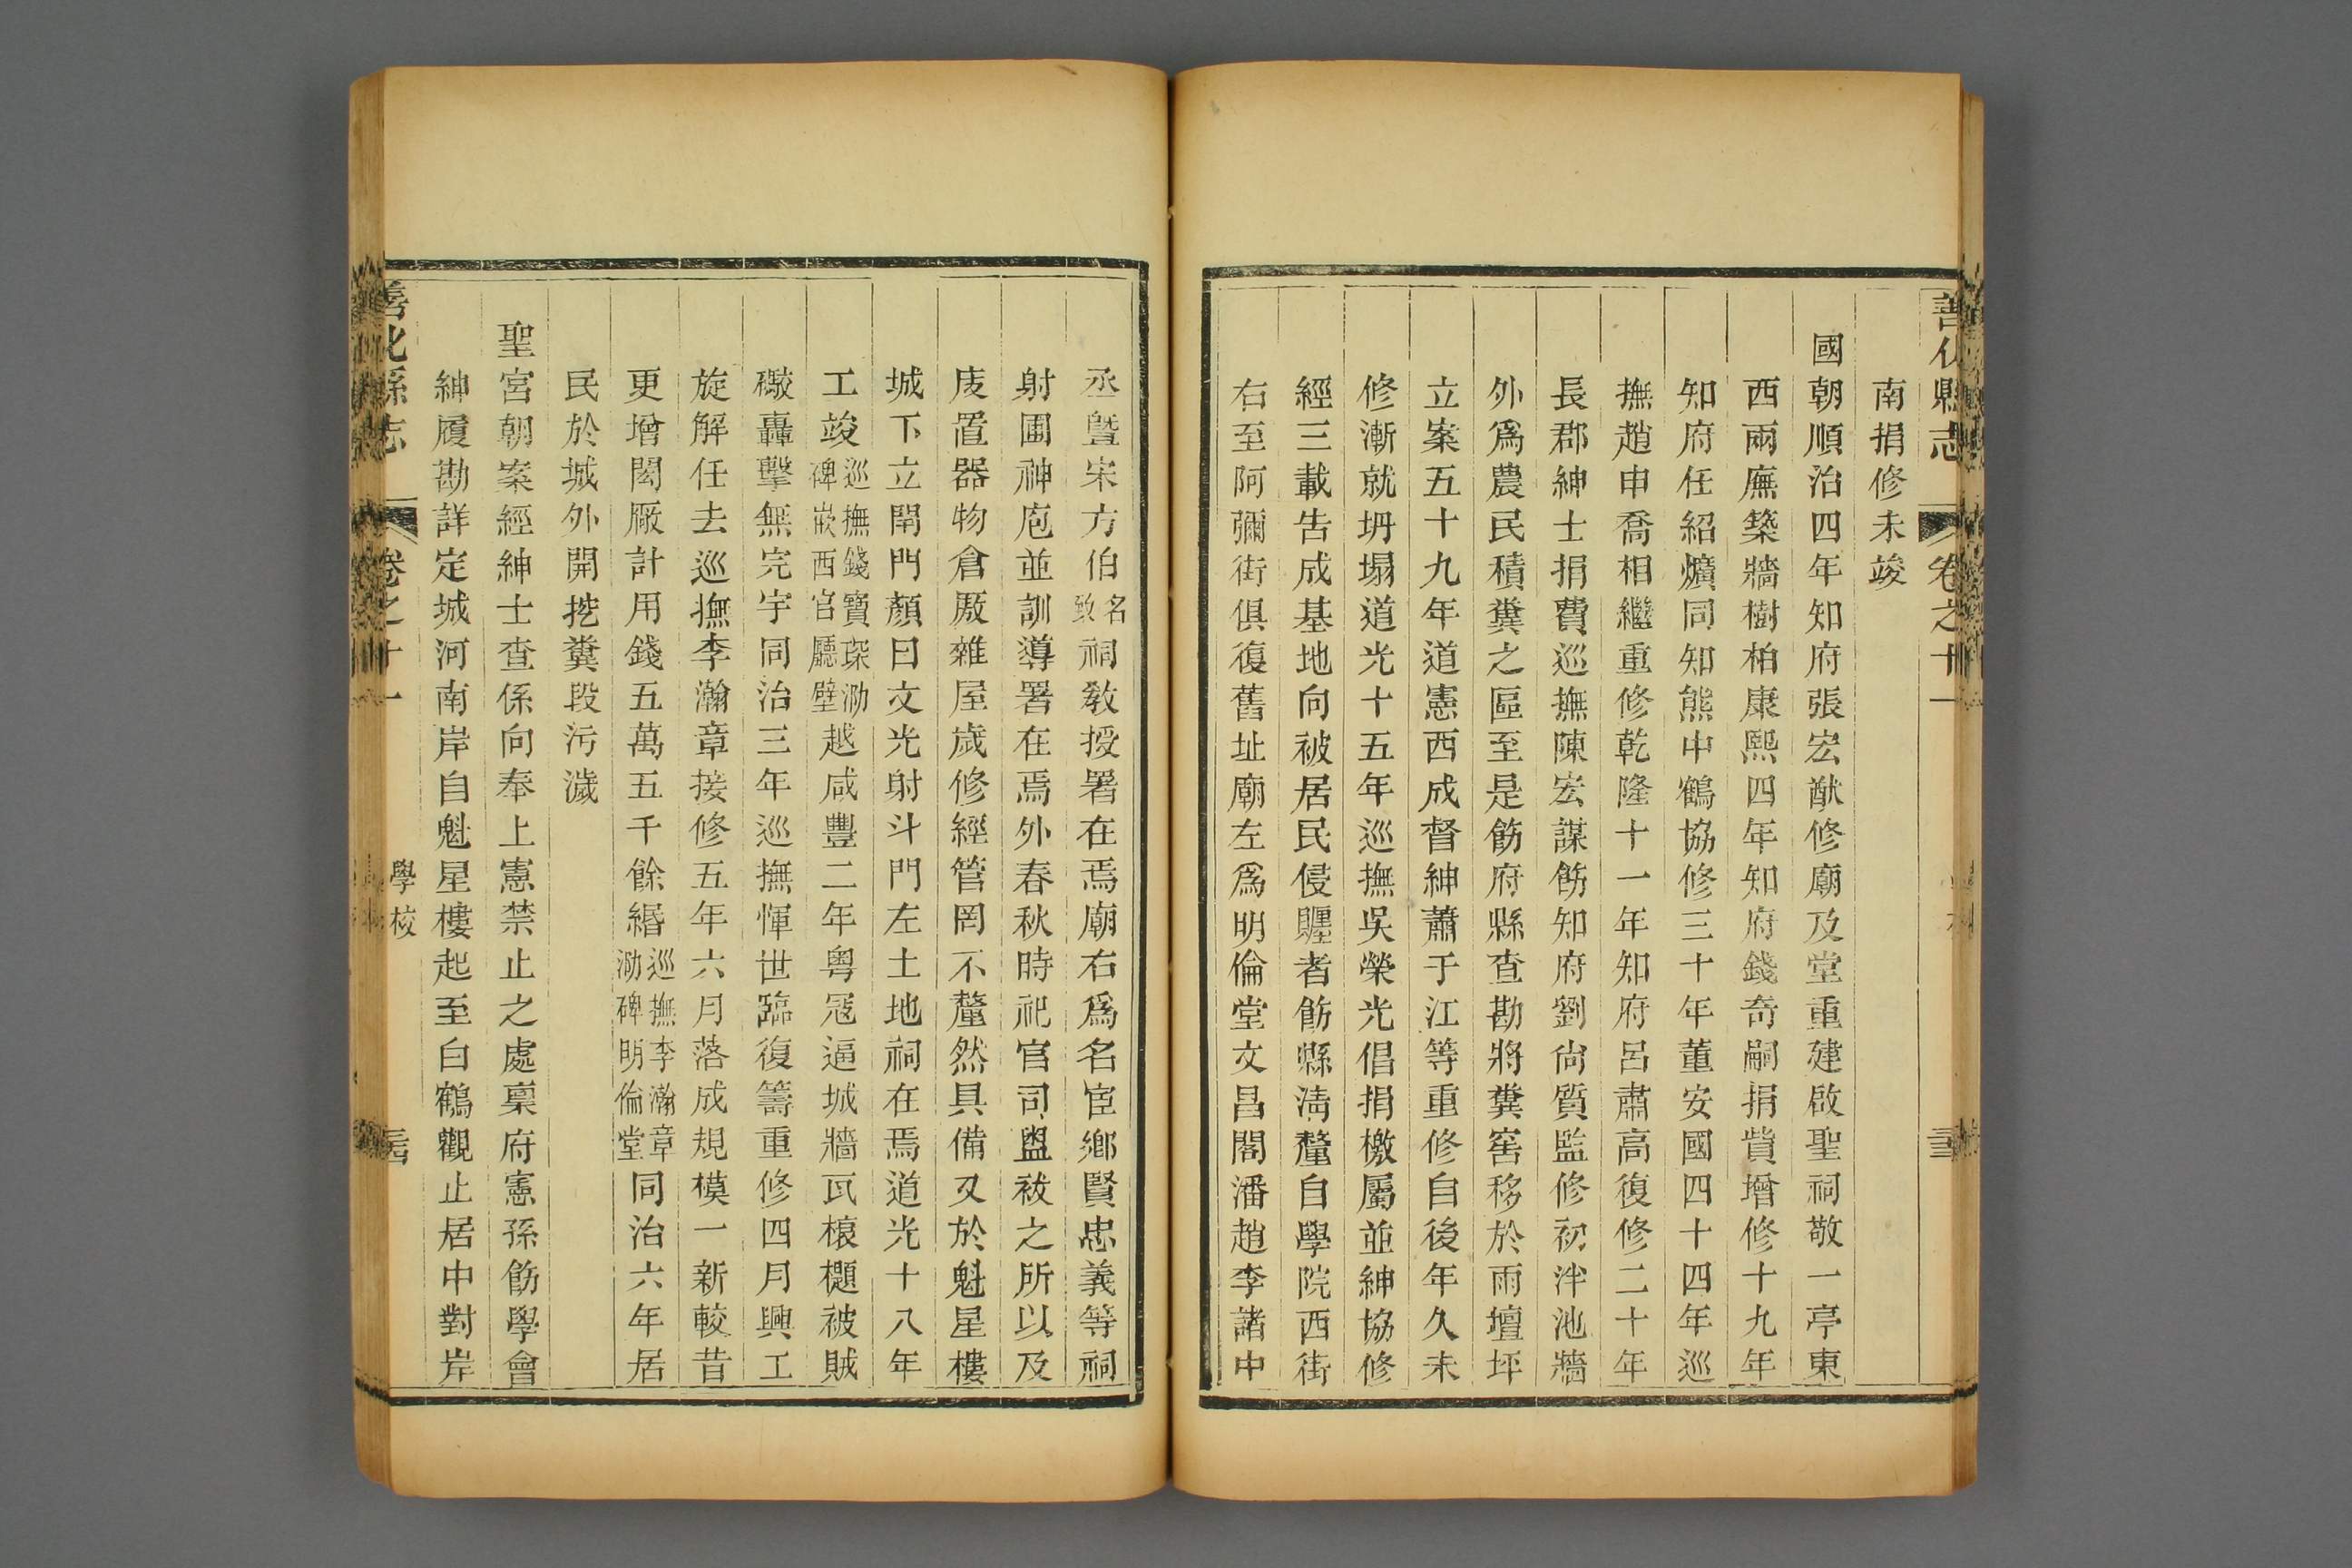 善化縣志　卷之十一
南捐修未竣
國朝順治四年知府張宏猷修廟及堂重建啟聖祠敬一亭東
西兩廡築牆樹柏康熙四年知府錢奇嗣捐貲增修十九年
知府任紹爌同知熊中鶴協修三十年董安國四十四年巡
撫趙申喬相繼重修乾隆十一年知府呂肅高復修二十年
長郡紳士捐費巡撫陳宏謀飭知府劉尙質監修初泮池牆
外爲農民積糞之區至是飭府縣查勘將糞窖移於雨壇坪
立案五十九年道憲西成督紳蕭于江等重修自後年久未
修漸就坍塌道光十五年巡撫吳榮光倡捐檄屬並紳協修
經三載告成基地向被居民侵㕓者飭縣淸釐自學院西街
右至阿彌街俱復舊址廟左爲明倫堂文昌閣潘趙李諸中
丞暨宋方伯名致祠教授署在焉廟右爲名宦鄉賢忠義等祠
射圃神庖並訓導署在焉外春秋時祀官司盥祓之所以及
庋置器物倉厫雜屋歲修經管罔不釐然具備又於魁星樓
城下立閈門顏曰文光射斗門左土地祠在焉道光十八年
工竣巡撫錢寶琛泐碑嵌西官廳壁越咸豐二年粵寇逼城牆瓦榱題被賊
礮轟擊無完宇同治三年巡撫惲世臨復籌重修四月興工
旋解任去巡撫李瀚章接修五年六月落成規模一新較昔
更增閎廠計用錢五萬五千餘緡巡撫李瀚章泐碑明倫堂同治六年居
民於城外開挖糞段污濊
聖宮朝案經紳士查係向奉上憲禁止之處稟府憲孫飭學會
紳履勘詳定城河南岸自魁星樓起至白鶴觀止居中對岸
善化縣志　卷之十一　學校